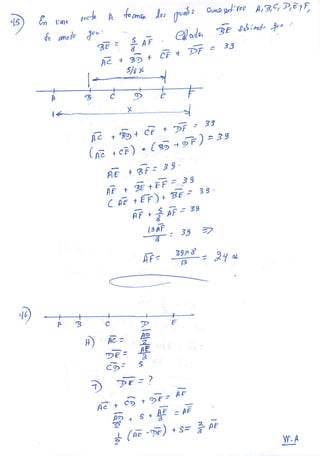 45) En una recta se toman los puntos consecutivos A, B, C, D, E y F,
de modo que: BE = 5/8 AF. Calcular BE sabiendo que:
AC + BD + CE + DF = 39
5/8 x
A B C D E F
x
AC + BD + CE + DF = 39
(AC + CE) + (BD + DF) = 39
AE + BF = 39.
AE + BE + EF = 39
(AE + EF) + BE = 39.
AF + 5/8 AF = 39
13AF/8 = 39 =>
AF = 39×8/13 = 24
46)
A B C D E
H) AC = AD/2
DE = AE/3
CD = 5
T) DE = ?
AC + CD + DE = AE
AD/2 + 5 + AE/3 = AE
1/2 (AE - DE) + 5 = 2/3 AE
W.A